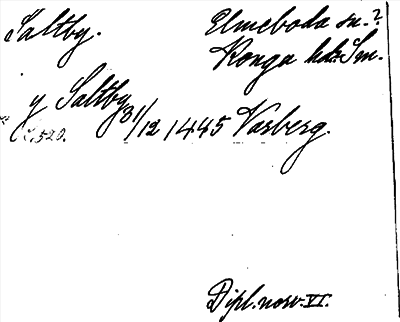 Saltby. Elmeboda sn.?
Konga hd. Sm.
y Saltby 31/12 1445 Varberg.
s. 520.
Dipl. norv. VI.